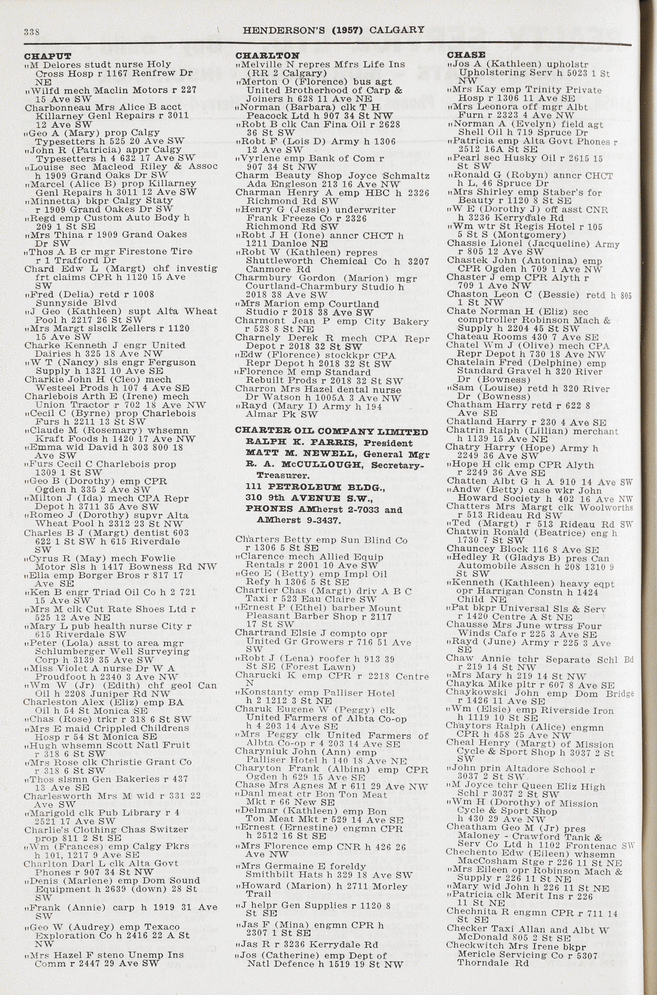 338
HENDERSON'S (1957) CALGARY
CHAPUT
"M Delores studt nurse Holy
Cross Hosp r 1167 Renfrew Dr
NE
"Wilfd mech Maclin Motors r 227
15 Ave SW
Charbonneau Mrs Alice B acct
Killarney Genl Repairs r 3011
12 Ave SW
"Geo A (Mary) prop Calgy
Typesetters h 525 20 Ave SW
"John R (Patricia) appr Calgy
Typesetters h 4 632 17 Ave SW
"Louise sec Macleod Riley & Assoc
h 1909 Grand Oaks Dr SW
"Marcel (Alice B) prop Killarney
Genl Repairs h 3011 12 Ave SW
"Minnetta) bkpr Calgy Staty
r 1909 Grand Oakes Dr SW
"Regd emp Custom Auto Body h
209 1 St SE
"Mrs Thina r 1909 Grand Oakes
Dr SW
"Thos A B cr mgr Firestone Tire
r 1 Trafford Dr
Chard Edw L (Margt) chf investig
frt claims CPR h 1120 15 Ave
SW
"Fred (Delia) retd r 1008
Sunnyside Blvd
"J Geo (Kathleen) supt Alta Wheat
Pool h 2217 26 St SW
"Mrs Margt slsclk Zellers r 1120
15 Ave SW
Charke Kenneth J engr United
Dairies h 325 18 Ave NW
"W T (Nancy) sls engr Ferguson
Supply h 1321 10 Ave SE
Charkie John H (Cleo) mech
Westeel Prods h 107 4 Ave SE
Charlebois Arth E (Irene) mech
Union Tractor r 702 18 Ave NW
"Cecil C (Byrne) prop Charlebois
Furs h 2211 13 St SW
"Claude M (Rosemary) whsemn
Kraft Foods h 1420 17 Ave NW
"Emma wid David h 303 800 18
Ave SW
"Furs Cecil C Charlebois prop
1309 1 St SW
"Geo B (Dorothy) emp CPR
Ogden h 335 2 Ave SW
"Milton J (Ida) mech CPA Repr
Depot h 3711 35 Ave SW
"Romeo J (Dorothy) supvr Alta
Wheat Pool h 2312 23 St NW
Charles B J (Margt) dentist 603
622 1 St SW h 615 Riverdale
SW
"Cyrus R (May) mech Fowlie
Motor Sls h 1417 Bowness Rd NW
"Ella emp Borger Bros r 817 17
Ave SE
"Ken B engr Triad Oil Co h 2 721
15 Ave SW
"Mrs M clk Cut Rate Shoes Ltd r
525 12 Ave NE
"Mary L pub health nurse City r
615 Riverdale SW
"Peter (Lola) asst to area mgr
Schlumberger Well Surveying
Corp h 3139 35 Ave SW
"Miss Violet A nurse Dr W A
Proudfoot h 2340 3 Ave NW
"Wm W (Jr) (Edith) chf geol Can
Oil h 2208 Juniper Rd NW
Charleston Alex (Eliz) emp BA
Oil h 54 St Monica SE
"Chas (Rose) trkr r 318 6 St SW
"Mrs E maid Crippled Childrens
Hosp r 54 St Monica SE
"Hugh whsemn Scott Natl Fruit
r 318 6 St SW
"Mrs Rose clk Christie Grant Co
r 318 6 St SW
"Thos slsmn Gen Bakeries r 437
13 Ave SE
Charlesworth Mrs M wid r 331 22
Ave SW
"Marigold clk Pub Library r 4
2521 17 Ave SW
Charlie's Clothing Chas Switzer
prop 811 2 St SE
"Wm (Frances) emp Calgy Pkrs
h 101, 1217 9 Ave SE
Charlton Darl L clk Alta Govt
Phones r 907 34 St NW
"Denis (Marlene) emp Dom Sound
Equipment h 2639 (down) 28 St
SW
"Frank (Annie) carp h 1919 31 Ave
SW
"Geo W (Audrey) emp Texaco
Exploration Co h 2416 22 A St
NW
"Mrs Hazel F steno Unemp Ins
Comm r 2447 29 Ave SW
CHARLTON
"Melville N repres Mfrs Life Ins
(RR 2 Calgary)
"Merton O (Florence) bus agt
United Brotherhood of Carp &
Joiners h 628 11 Ave NE
"Norman (Barbara) clk T H
Peacock Ltd h 907 34 St NW
"Robt B clk Can Fina Oil r 2628
36 St SW
"Robt F (Lois D) Army h 1306
12 Ave SW
"Vyrlene emp Bank of Com r
907 34 St NW
Charm Beauty Shop Joyce Schmaltz
Ada Engleson 213 16 Ave NW
Charman Henry A emp HBC h 2326
Richmond Rd SW
"Henry G (Jessie) underwriter
Frank Freeze Co r 2326
Richmond Rd SW
"Robt J H (Ione) anncr CHCT h
1211 Danloe NE
"Robt W (Kathleen) repres
Shuttleworth Chemical Co h 3207
Canmore Rd
Charmbury Gordon (Marion) mgr
Courtland-Charmbury Studio h
2018 38 Ave SW
"Mrs Marion emp Courtland
Studio r 2018 38 Ave SW
Charmont Jean P emp City Bakery
r 528 8 St NE
Charnely Derek R mech CPA Repr
Depot r 2018 32 St SW
"Edw (Florence) stockkpr CPA
Repr Depot h 2018 32 St SW
"Florence M emp Standard
Rebuilt Prods r 2018 32 St SW
Charron Mrs Hazel dental nurse
Dr Watson h 1005A 3 Ave NW
"Rayd (Mary I) Army h 194
Almar Pk SW
CHARTER OIL COMPANY LIMITED
RALPH K. FARRIS, President
MATT M. NEWELL, General Mgr
R. A. McCULLOUGH, Secretary-
Treasurer.
111 PETROLEUM BLDG.,
310 9th AVENUE S.W.,
PHONES AMherst 2-7033 and
AMherst 9-3437.
Charters Betty emp Sun Blind Co
r 1306 5 St SE
"Clarence mech Allied Equip
Rentals r 2001 10 Ave SW
"Geo E (Betty) emp Impl Oil
Refy h 1306 5 St SE
Chartier Chas (Margt) driv A B C
Taxi r 523 Eau Claire SW
"Ernest P (Ethel) barber Mount
Pleasant Barber Shop r 2117
17 St SW
Chartrand Elsie J compto opr
United Gr Growers r 716 51 Ave
SW
"Robt J (Lena) roofer h 913 39
St SE (Forest Lawn)
Charucki K emp CPR r 2218 Centre
N
"Konstanty emp Palliser Hotel
h 2 1212 3 St NE
Charuk Eugene W (Peggy) clk
United Farmers of Albta Co-op
h 4 203 14 Ave SE
"Mrs Peggy clk United Farmers of
Albta Co-op r 4 203 14 Ave SE
Charyniuk John (Ann) emp
Palliser Hotel h 140 18 Ave NE
Charyton Frank (Albina) emp CPR
Ogden h 629 15 Ave SE
Chase Mrs Agnes M r 611 29 Ave NW
"Danl meat ctr Bon Ton Meat
Mkt r 66 New SE
"Delmar (Kathleen) emp Bon
Ton Meat Mkt r 529 14 Ave SE
"Ernest (Ernestine) engmn CPR
h 2512 16 St SE
"Mrs Florence emp CNR h 426 26
Ave NW
"Mrs Germaine E foreldy
Smithbilt Hats h 329 18 Ave SW
"Howard (Marion) h 2711 Morley
Trail
"J helpr Gen Supplies r 1120 8
St SE
"Jas F (Mina) engmn CPR h
2307 1 St SE
"Jas R r 3236 Kerrydale Rd
"Jos (Catherine) emp Dept of
Natl Defence h 1519 19 St NW
CHASE
"Jos A (Kathleen) upholstr
Upholstering Serv h 5023 1 St
NW
"Mrs Kay emp Trinity Private
Hosp r 1306 11 Ave SE
"Mrs Leonora off mgr Albt
Furn r 2323 4 Ave NW
"Norman A (Evelyn) field agt
Shell Oil h 719 Spruce Dr
"Patricia emp Alta Govt Phones r
2512 16A St SE
"Pearl sec Husky Oil r 2615 15
St SW
"Ronald G (Robyn) anncr CHCT
h L, 46 Spruce Dr
"Mrs Shirley emp Staber's for
Beauty r 1120 8 St SE
"W E (Dorothy J) off asst CNR
h 3236 Kerrydale Rd
"Wm wtr St Regis Hotel r 105
5 St S (Montgomery)
Chassie Lionel (Jacqueline) Army
r 805 12 Ave SW
Chastek John (Antonina) emp
CPR Ogden h 709 1 Ave NW
Chaster J emp CPR Alyth r
709 1 Ave NW
Chaston Leon C (Bessie) retd h 805
1 St NW
Chate Norman H (Eliz) sec
comptroller Robinson Mach &
Supply h 2204 45 St SW
Chateau Rooms 430 7 Ave SE
Chatel Wm J (Olive) mech CPA
Repr Depot h 730 18 Ave NW
Chatelain Fred (Delphine) emp
Standard Gravel h 320 River
Dr (Bowness)
"Sam (Louise) retd h 320 River
Dr (Bowness)
Chatham Harry retd r 622 8
Ave SE
Chatland Harry r 230 4 Ave SE
Chatrin Ralph (Lillian) merchant
h 1139 15 Ave NE
Chatry Harry (Hope) Army h
2249 36 Ave SW
"Hope H clk emp CPR Alyth
r 2249 36 Ave SE
Chatten Albt G h A 910 14 Ave SW
"Andw (Betty) case wkr John
Howard Society h 402 16 Ave NW
Chatters Mrs Margt clk Woolworths
r 513 Rideau Rd SW
"Ted (Margt) r 513 Rideau Rd SW
Chatwin Ronald (Beatrice) eng h
1730 7 St SW
Chauncey Block 116 8 Ave SE
"Hedley R (Gladys B) pres Can
Automobile Asscn h 208 1310 9
St SW
"Kenneth (Kathleen) heavy eqpt
opr Harrigan Constn h 1424
Child NE
"Pat bkpr Universal Sls & Serv
r 1420 Centre A St NE
Chausse Mrs June wtrss Four
Winds Cafe r 225 3 Ave SE
"Rayd (June) Army r 225 3 Ave
SE
Chaw Annie tchr Separate Schl Bd
r 219 14 St NW
"Mrs Mary h 219 14 St NW
Chayka Mike pltr r 607 8 Ave SE
Chaykowski John emp Dom Bridge
r 1426 11 Ave SE
"Wm (Elsie) emp Riverside Iron
h 1119 10 St SE
Chaytors Ralph (Alice) engmn
CPR h 458 25 Ave NW
Cheal Henry (Margt) of Mission
Cycle & Sport Shop h 3037 2 St
SW
"John prin Altadore School r
3037 2 St SW
"M Joyce tchr Queen Eliz High
Schl r 3037 2 St SW
"Wm H (Dorothy) of Mission
Cycle & Sport Shop
h 430 29 Ave NW
Cheatham Geo M (Jr) pres
Maloney - Crawford Tank &
Serv Co Ltd h 1102 Frontenac SW
Chechento Edw (Eileen) whsemn
MacCosham Stge r 226 11 St NE
"Mrs Eileen opr Robinson Mach &
Supply r 226 11 St NE
"Mary wid John h 226 11 St NE
"Patricia clk Merit Ins r 226
11 St NE
Chechnita R engmn CPR r 711 14
St SE
Checker Taxi Allan and Albt W
McDonald 805 2 St SE
Checkwitch Mrs Irene bkpr
Mericle Servicing Co r 5307
Thorndale Rd